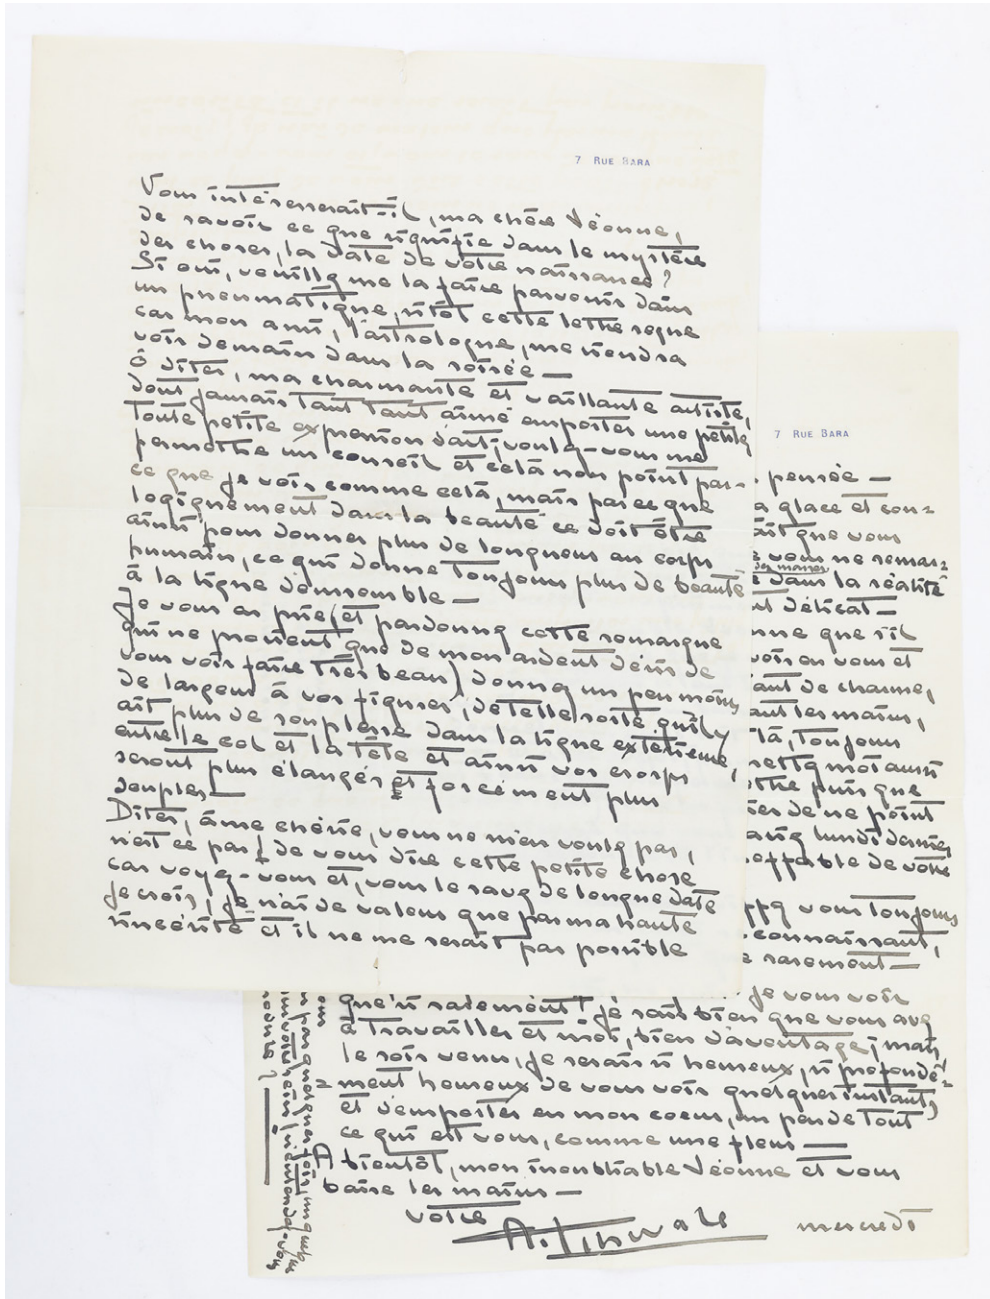 7 RUE BARA
Vous intéresserait-il, ma chère Léonne,
de savoir ce que signifie dans le mystère
des choses, la date de votre naissance?
Si oui, veuillez me la faire parvenir dans
un pneumatique, sitôt cette lettre reçue
car mon ami, l'astrologue, me viendra
voir demain dans la soirée —
Ô dites, ma charmante et vaillante artiste,
dont jamais tant tant aimé emporter une petite
toute petite expression d'art, voulez-vous me
permettre un conseil et cela non point par-
ce que je vois comme cela, mais parce que
logiquement dans la beauté ce doit être
ainsi pour donner plus de longueur au corps
humain, ce qui donne toujours plus de beauté
à la ligne d'ensemble —
Je vous en prie (et pardonnez cette remarque
qui ne provient que de mon ardent désir de
vous voir faire très beau) donnez un peu moins
de largeur à vos figures, de telle sorte qu'il y
ait plus de souplesse dans la ligne extérieure,
entre le col et la tête et ainsi vos corps
seront plus élancés et forcément plus
souples —
Dites, âme chérie, vous ne m'en voulez pas,
n'est ce pas, de vous dire cette petite chose
car voyez-vous et, vous le savez de longue date
je crois, je n'ai de valeur que par ma haute
sincérité et il ne me serait pas possible
7 RUE BARA
pensée —
a glace et con-
ait que vous
vous ne remar-
des masses
dans la réalité
délicat —
nne que s'il
voir en vous et
ant de charme,
les mains,
là, toujours
mettez moi aussi
puis que
de ne point
lundi dernier
de votre
vous toujours
reconnaissant,
rarement —
je vous vois
que si rarement! je sais bien que vous avez
à travailler et moi, bien d'avantage; mais,
le soir venu, je serais si heureux, si profondé-
ment heureux de vous voir quelques instants,
et d'emporter en mon coeur, un peu de tout
ce qui est vous, comme une fleur —
A bientôt, mon inoubliable Léonne et vous
baise les mains —
votre
mercredi